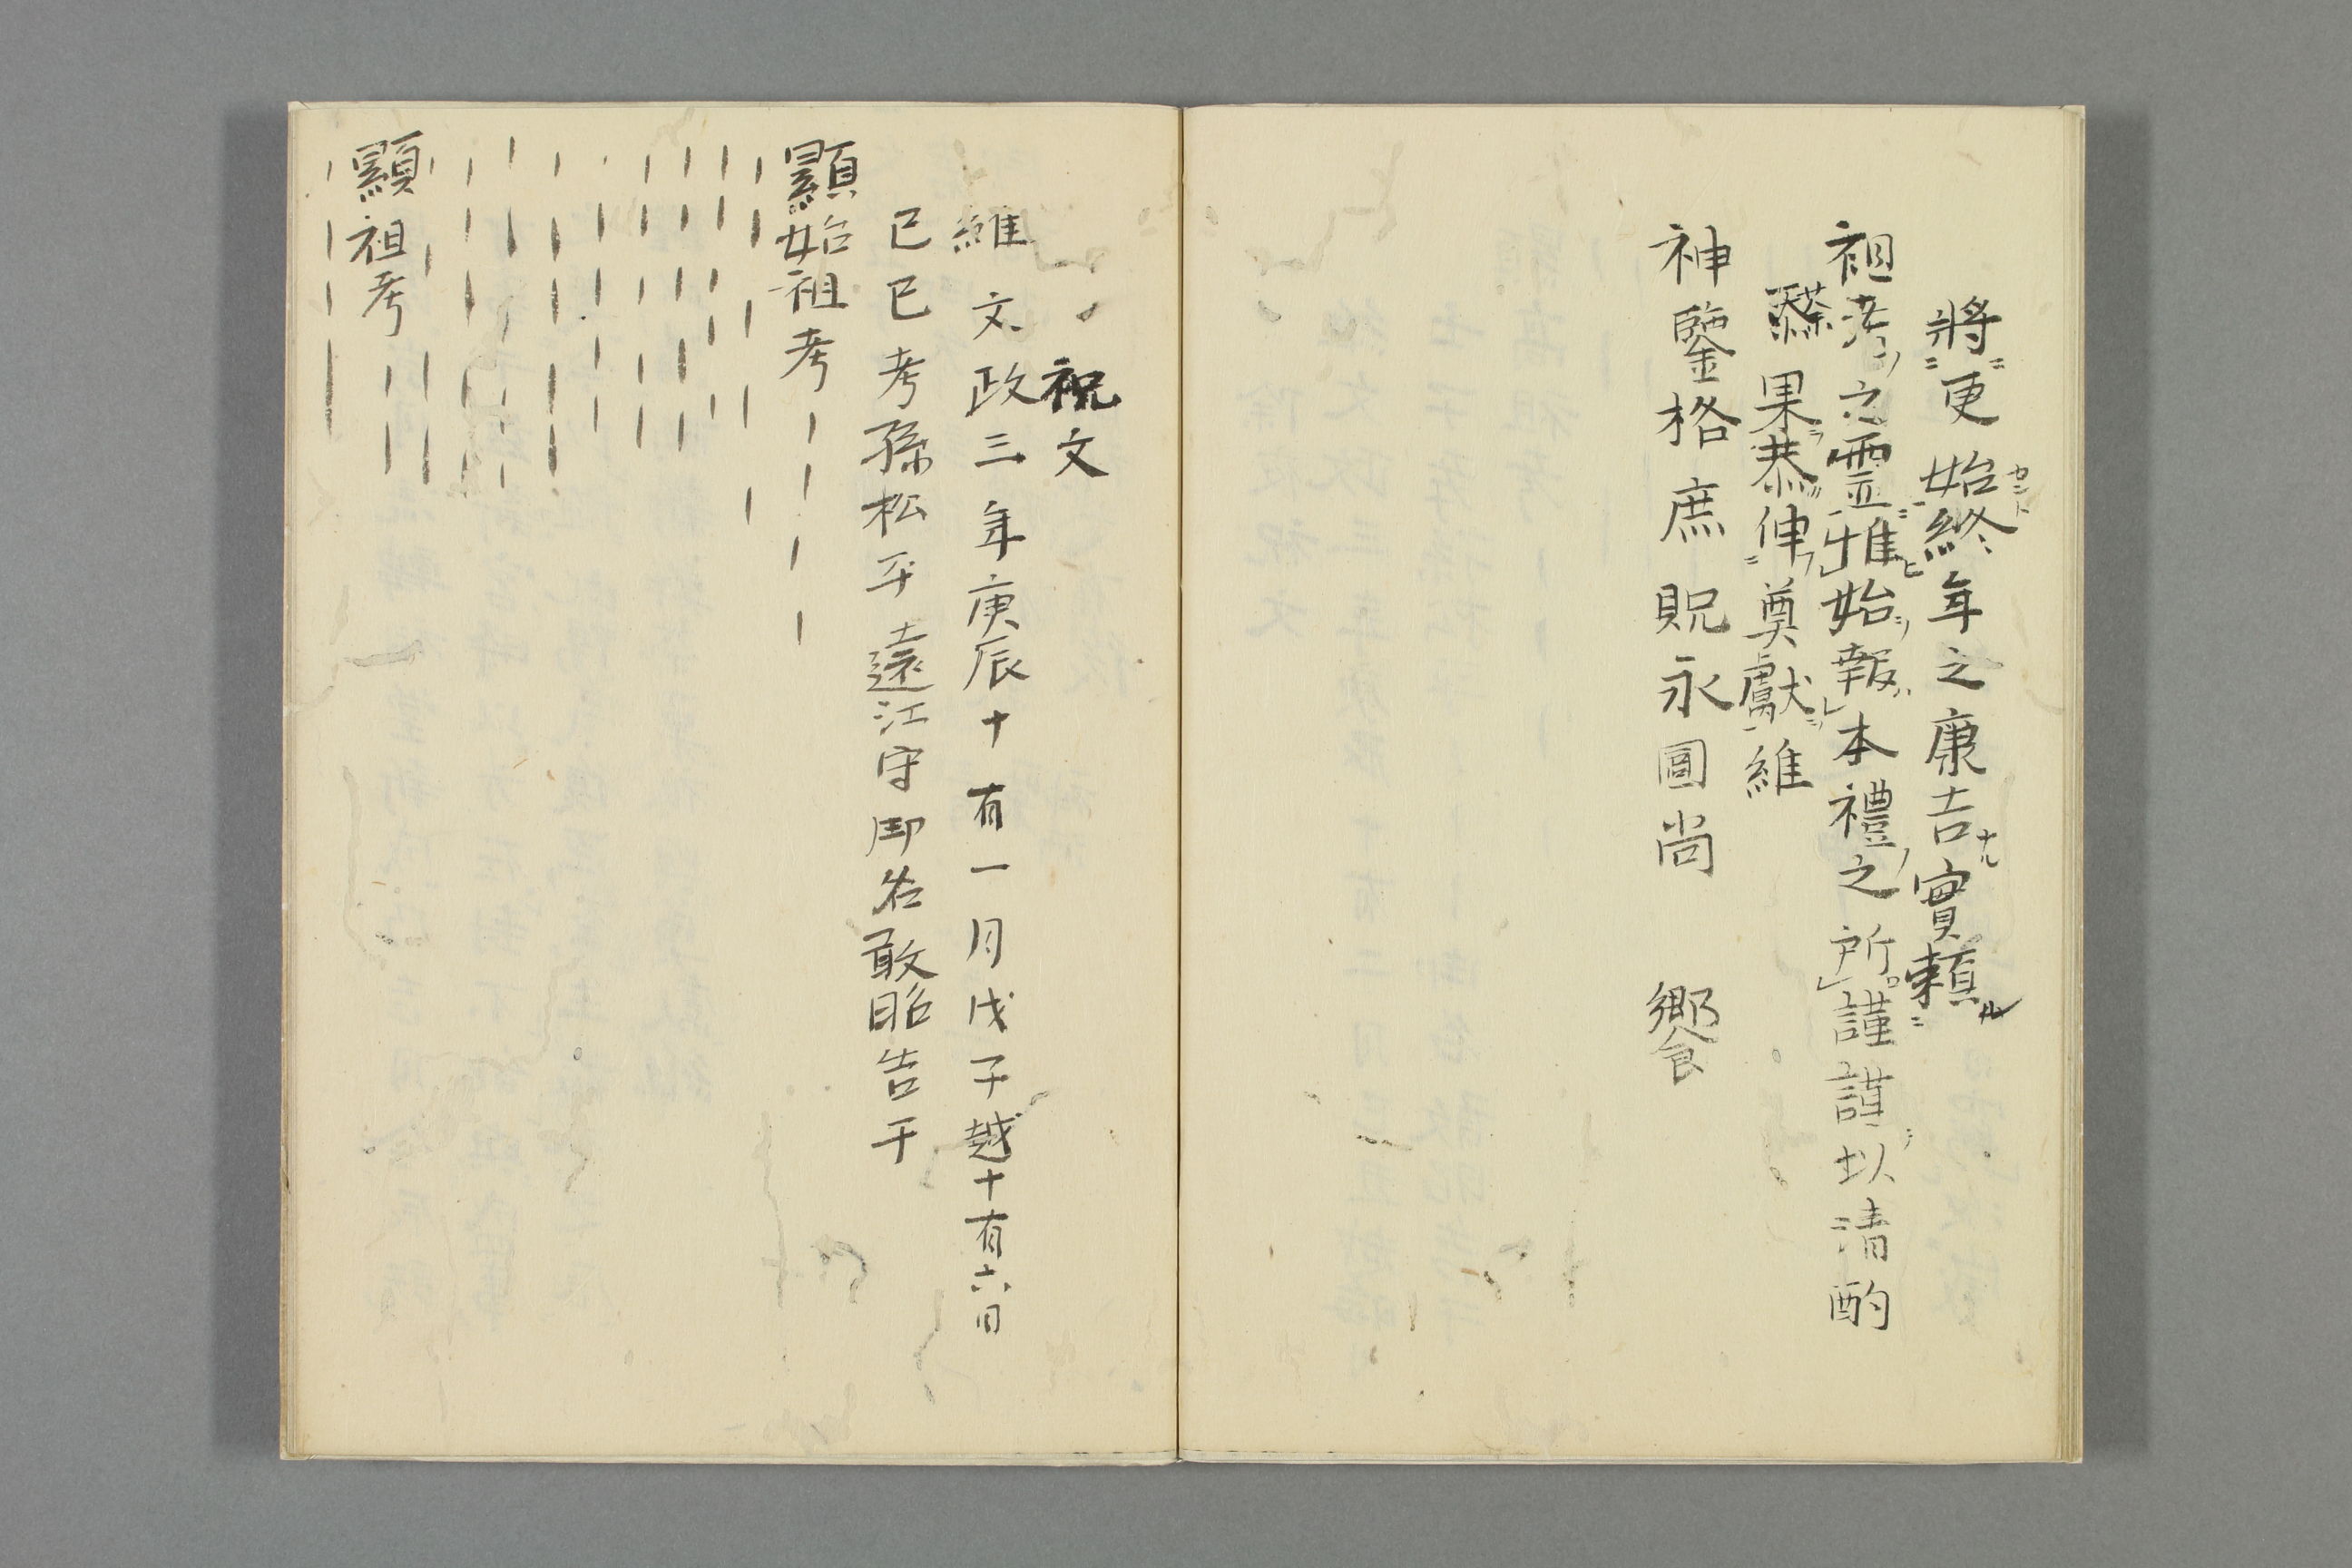 將更始終年之康吉實頼
祖考之霊惟始報本禮之所謹謹以清酌
粢果恭伸奠獻維
神鑒格庶貺永圖尚 饗
祝文
維 文政三年庚辰十有一月戊子越十有六日
己巳考孫松平遠江守御名敢昭告于
顯始祖考
顯祖考